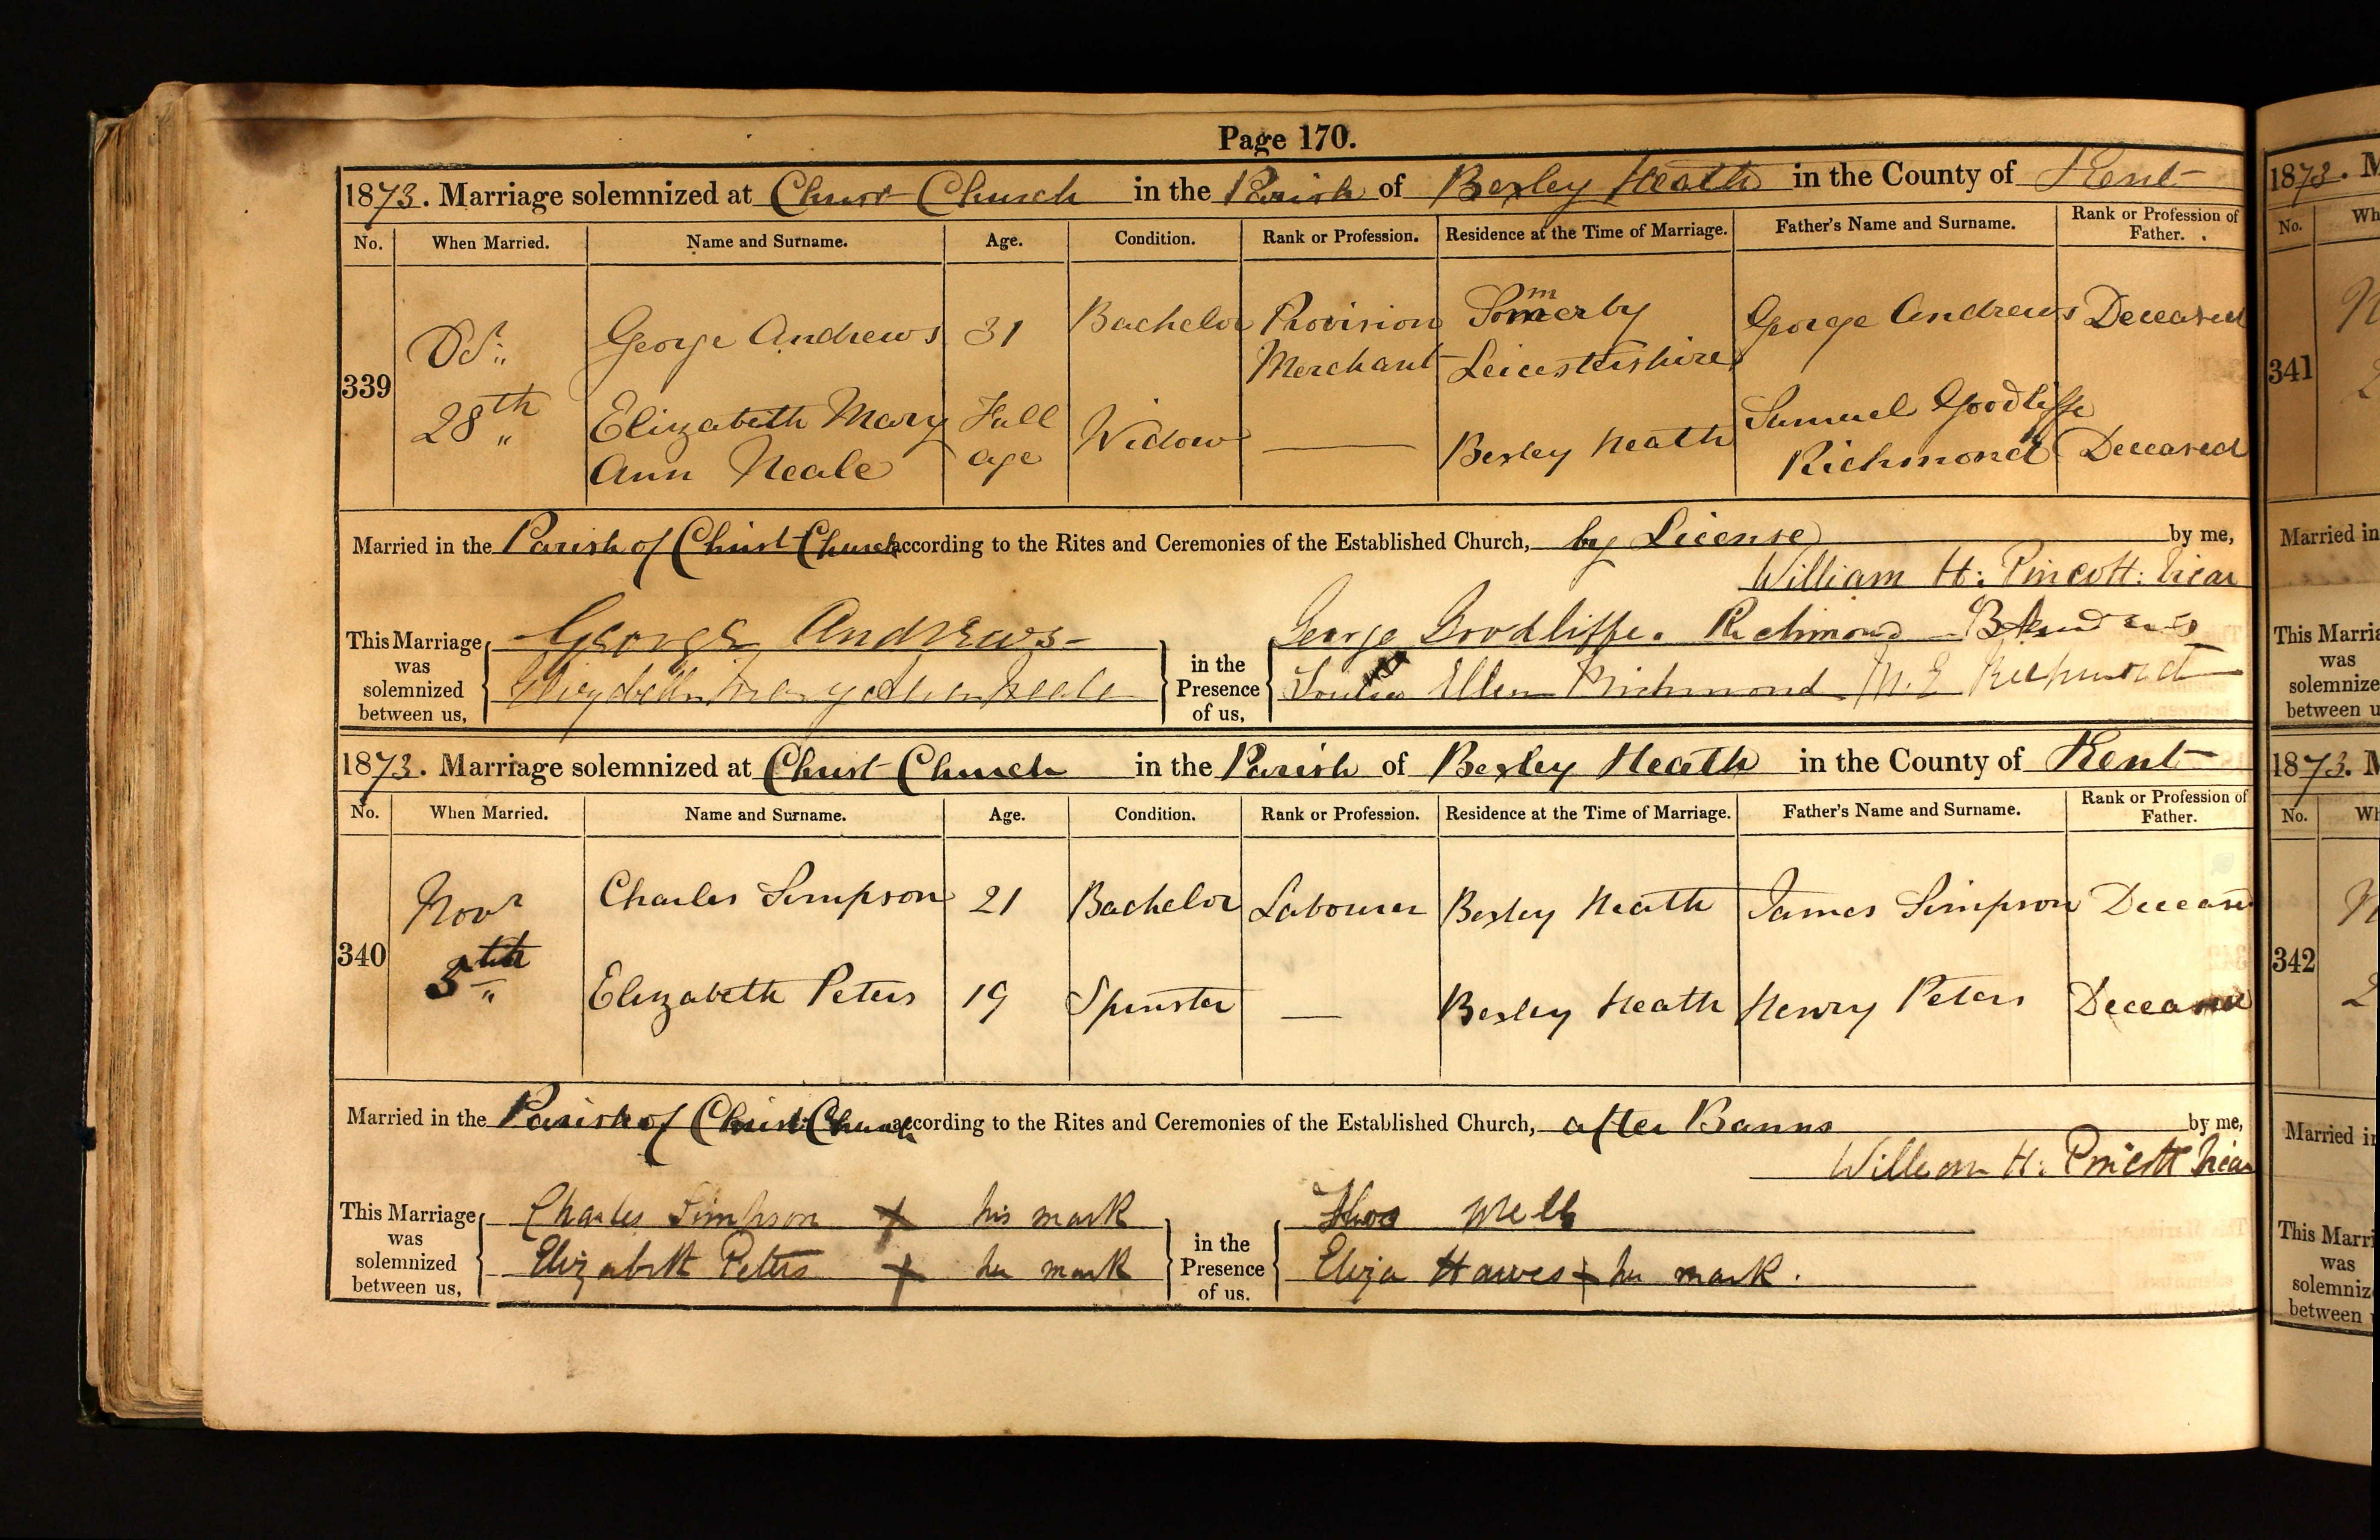 Page 170.
1873. Marriage solemnized at Christ Church in the Parish of Bexley Heath in the County of Kent
No. When Married. Name and Surname. Age. Condition. Rank or Profession. Residence at the Time of Marriage. Father's Name and Surname. Rank or Profession of Father.
339 Octr 28th George Andrews 31 Bachelor Provision Merchant Somerby Leicestershire George Andrews Deceased
Elizabeth Mary Ann Neale Full age Widow — Bexley Heath Samuel Goodliffe Richmond Deceased
Married in the Parish of Christ Church according to the Rites and Ceremonies of the Established Church, by License by me,
William H: Pincott: Vicar
This Marriage was solemnized between us, George Andrews
Elizabeth Mary Ann Neale
in the Presence of us, George Goodliffe. Richmond B Andrews
Louisa Ellen Richmond M. E Richmond
1873. Marriage solemnized at Christ Church in the Parish of Bexley Heath in the County of Kent
No. When Married. Name and Surname. Age. Condition. Rank or Profession. Residence at the Time of Marriage. Father's Name and Surname. Rank or Profession of Father.
340 Novr 5th Charles Simpson 21 Bachelor Labourer Bexley Heath James Simpson Deceased
Elizabeth Peters 19 Spinster — Bexley Heath Henry Peters Deceased
Married in the Parish of Christ Church according to the Rites and Ceremonies of the Established Church, after Banns by me,
William H: Pincott Vicar
This Marriage was solemnized between us, Charles Simpson X his mark
Elizabeth Peters X her mark
in the Presence of us. Thos Wells
Eliza Hawes X her mark.
1873. M
No. Wh
341
Married in
This Marria
was
solemnize
between u
1873. M
No. Wh
342
Married in
This Marri
was
solemniz
between